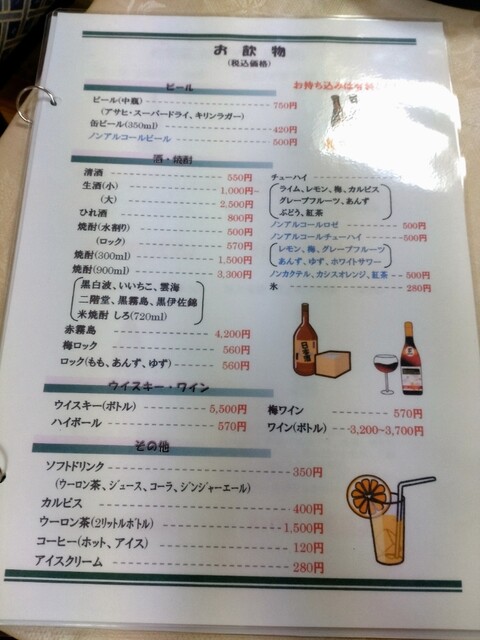 お飲物
(税込価格)
ビール
お持ち込みは有料
ビール(中瓶) 750円
(アサヒ・スーパードライ、キリンラガー)
缶ビール(350ml) 420円
ノンアルコールビール 500円
酒・焼酎
清酒 550円
生酒(小) 1,000円~
(大) 2,500円
ひれ酒 800円
焼酎(水割り) 500円
(ロック) 570円
焼酎(300ml) 1,500円
焼酎(900ml) 3,300円
黒白波、いいちこ、雲海
二階堂、黒霧島、黒伊佐錦
米焼酎 しろ(720ml)
赤霧島 4,200円
梅ロック 560円
ロック(もも、あんず、ゆず) 560円
チューハイ
ライム、レモン、梅、カルピス
グレープフルーツ、あんず
ぶどう、紅茶
ノンアルコールロゼ 500円
ノンアルコールチューハイ 500円
レモン、梅、グレープフルーツ
あんず、ゆず、ホワイトサワー
ノンカクテル、カシスオレンジ、紅茶 500円
氷 280円
ウイスキー・ワイン
ウイスキー(ボトル) 5,500円
ハイボール 570円
梅ワイン 570円
ワイン(ボトル) 3,200~3,700円
その他
ソフトドリンク 350円
(ウーロン茶、ジュース、コーラ、ジンジャーエール)
カルピス 400円
ウーロン茶(2リットルボトル) 1,500円
コーヒー(ホット、アイス) 120円
アイスクリーム 280円